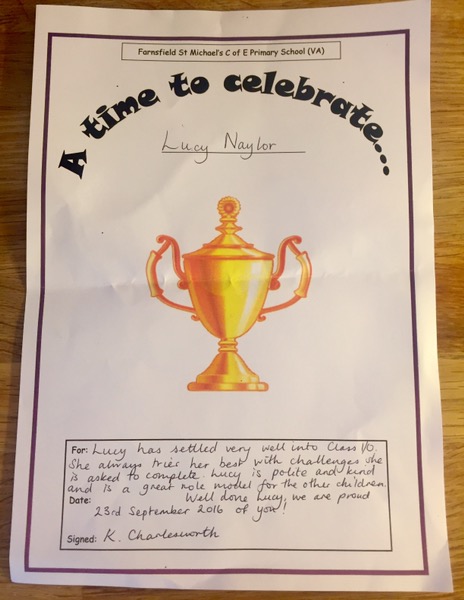 Farnsfield St Michael's C of E Primary School (VA)
A time to celebrate...
Lucy Naylor
For: Lucy has settled very well into Class 1/0.
She always tries her best with challenges she
is asked to complete. Lucy is polite and kind
and is a great role model for the other children.
Date: Well done Lucy, we are proud
23rd September 2016 of you!
Signed: K. Charlesworth